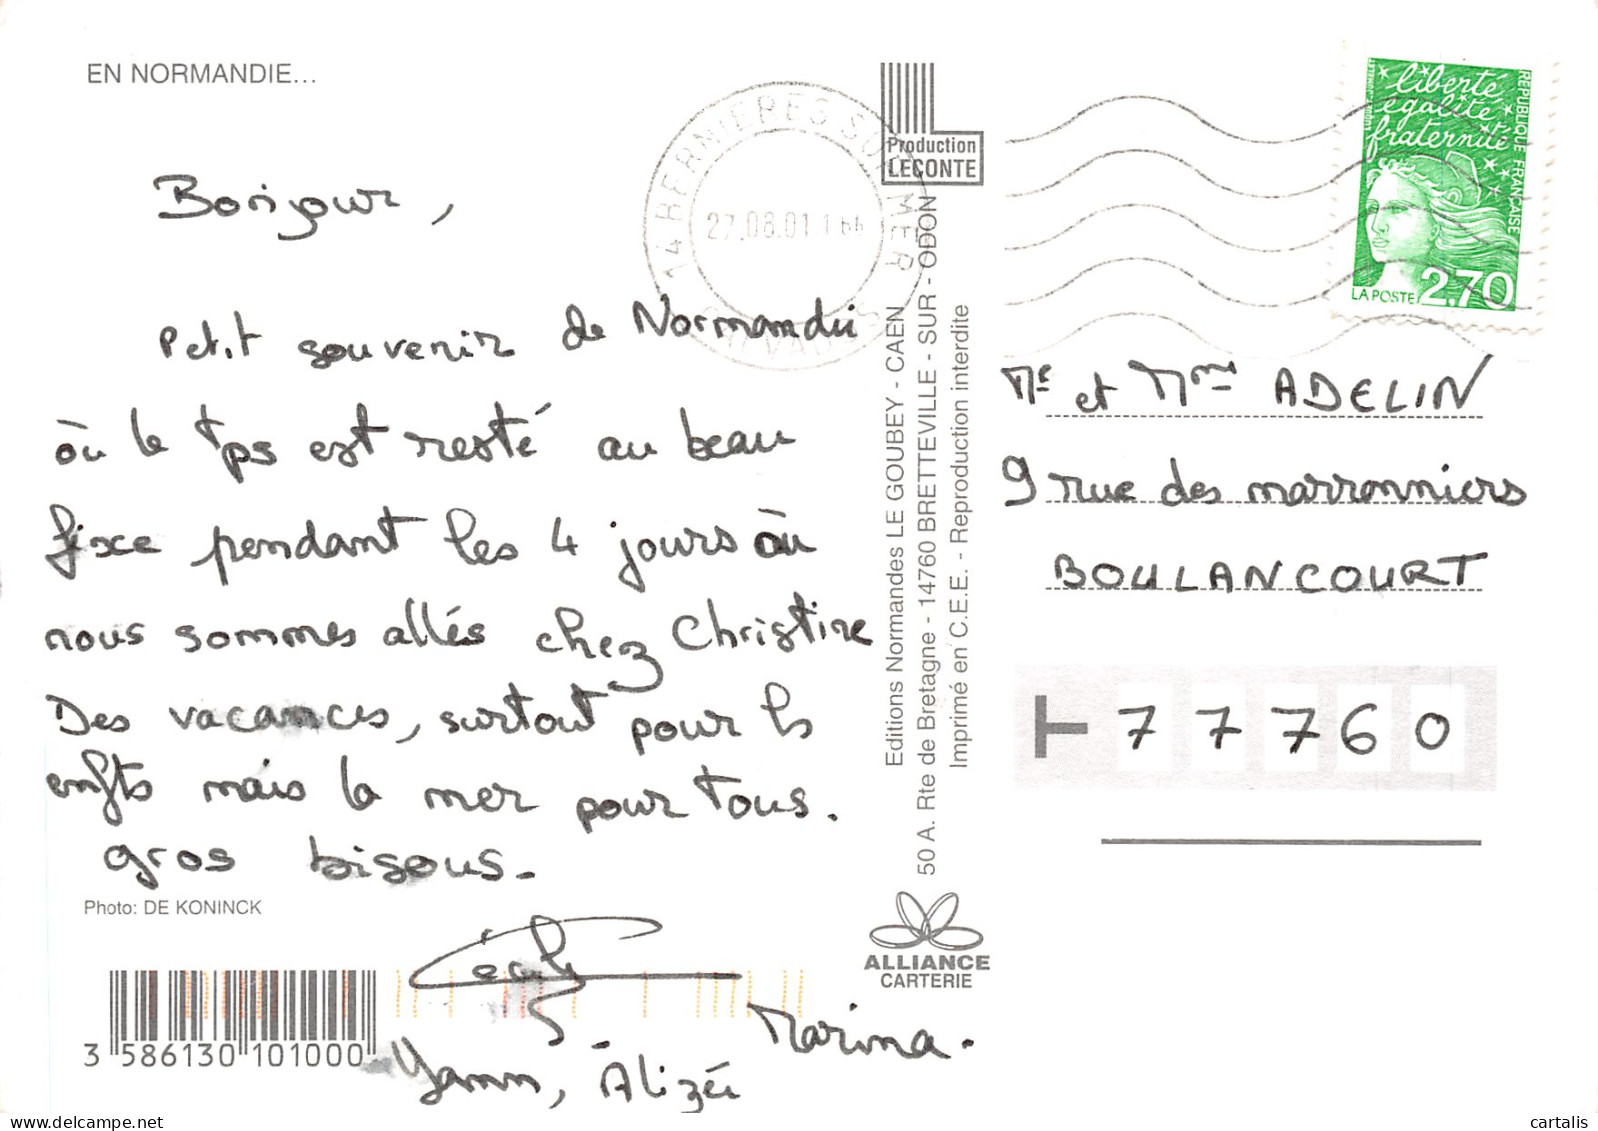 EN NORMANDIE...
Bonjour,
Petit souvenir de Normandie
où le tps est resté au beau
fixe pendant les 4 jours où
nous sommes allés chez Christine
Des vacances, surtout pour ls
enfts mais la mer pour tous.
gros bisous.
Photo: DE KONINCK
Cécile
Yann, Alizée
Marina.
3 586130 101000
14 BERNIERES SUR MER
CALVADOS
27.08.01
Production
LECONTE
Editions Normandes LE GOUBEY - CAEN
50 A. Rte de Bretagne - 14760 BRETTEVILLE - SUR - ODON
Imprimé en C.E.E. - Reproduction interdite
ALLIANCE
CARTERIE
liberté
égalité
fraternité
REPUBLIQUE FRANÇAISE
LA POSTE 2,70
Mr et Mme ADELIN
9 rue des marronniers
BOULANCOURT
77760
cartalis